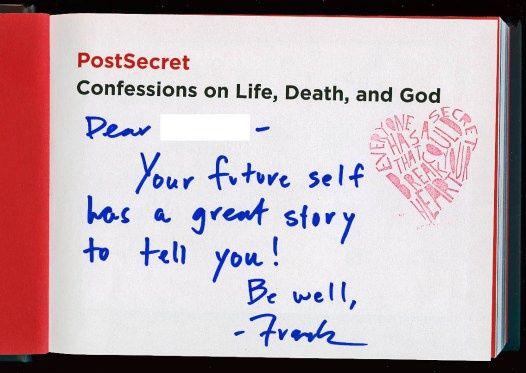 PostSecret
Confessions on Life, Death, and God
Dear -
Your future self
has a great story
to tell you!
Be well,
- Frank
EVERYONE
HAS A SECRET
THAT COULD
BREAK YOUR
HEART